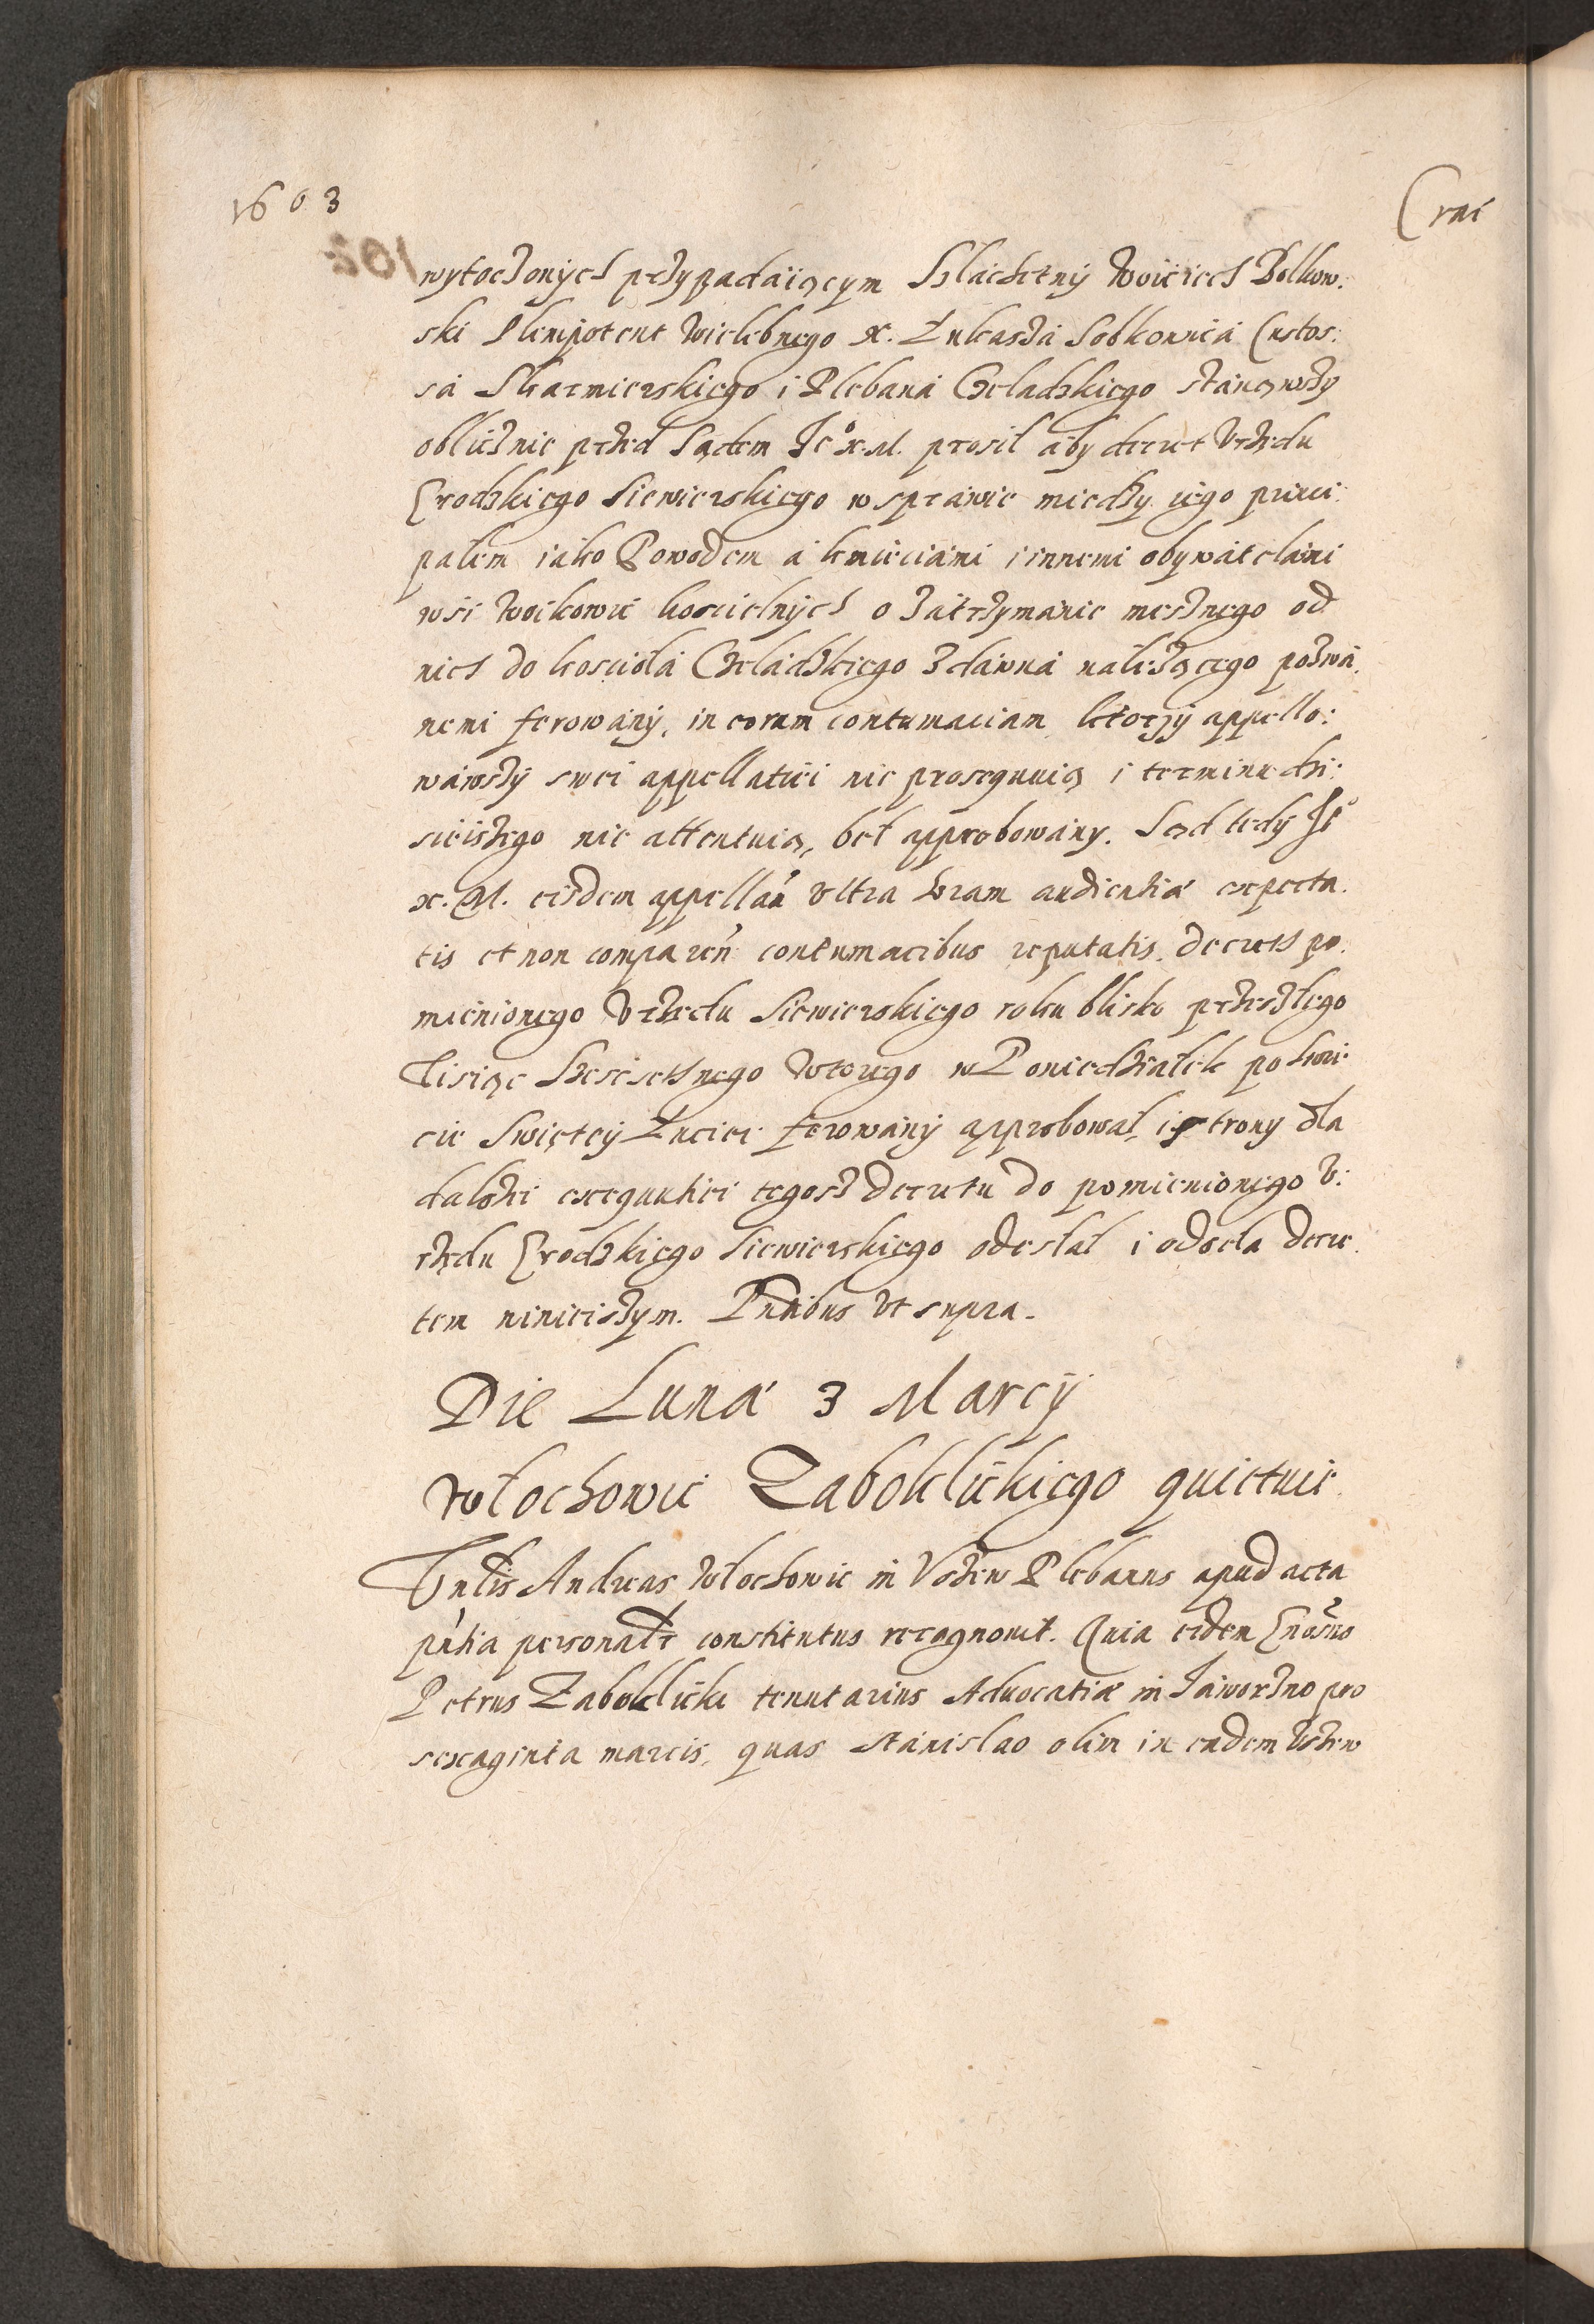 1603
Crac
wytoczonych przypadaiącym Szláchetny Woiciech Bolkow:
ski Plenipotent Wielebnego X. Łukaszá Sobkowicá Custos:
sá Skarmierskiego i Plebaná Czeladzkiego stánąwszy
oblicznie przed Sądem Je° X. M. prosił áby decret Vrzędu
Grodzkiego Siewierskiego w spráwie między iego princi:
pałem iáko Powodem á kmieciámi i innemi obywátelámi
wsi Woikowic koscielnych o zátrzymánie mesznego od
nich do kosciołá Czeládzkiego zdáwná należącego pozwá:
nemi ferowány, in eorum contumaciam, ktorzy appello:
wáwszy swei appellatiei nie prosequuią i terminu dzi:
sieiszego nie attentuią, beł approbowány. Sąd tedy Je°
X. M. eisdem appellan̄ vltra horam audientiæ expecta:
tis et non comparen̄ contumacibus reputatis, decret po:
mienionego Vrzędu Siewierskiego roku blisko przeszłego
Tisiąc Szescsetnego Wtorego w Poniedziałek po Swię:
cie Swiętey Łuciei ferowány approbował, i strony dla
dalszei exequutiei tegosz decretu do pomienionego V:
rzędu Grodzkiego Siewierskiego odesłał i odseła decre:
tem ninieiszym. Pn̄tibus vt supra.
Die Lunæ 3 Marcij
Włochowic Zaboklickiego quietuie.
Vn̄lis Andreas Włochowic in Vszew Plebanus apud acta
pn̄tia personalr̄ constitutus recognouit. Quia eidem Gn̄osus
Petrus Zaboklicki tenutarius Aduocatiæ in Jáworzno pro
sexaginta marcis, quas Stánislao olim in eadem Vszew